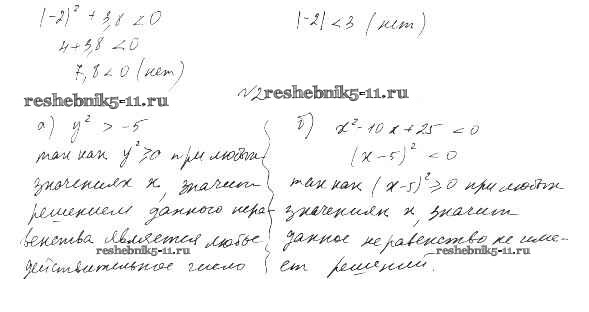 (-2)² + 3,8 < 0
4+3,8 < 0
7,8 < 0 (нет)
|-2| < 3 (нет)
reshebnik5-11.ru
√2 reshebnik5-11.ru
а) y² > -5
так как y² ≥ 0 при любых
значениях х, значит
решением данного нера-
венства является любое
reshebnik5-11.ru
действительное число
б) x² - 10x + 25 < 0
(x-5)² < 0
так как (x-5)² ≥ 0 при любых
значениях х, значит
данное неравенство не име-
reshebnik5-11.ru
ет решений.